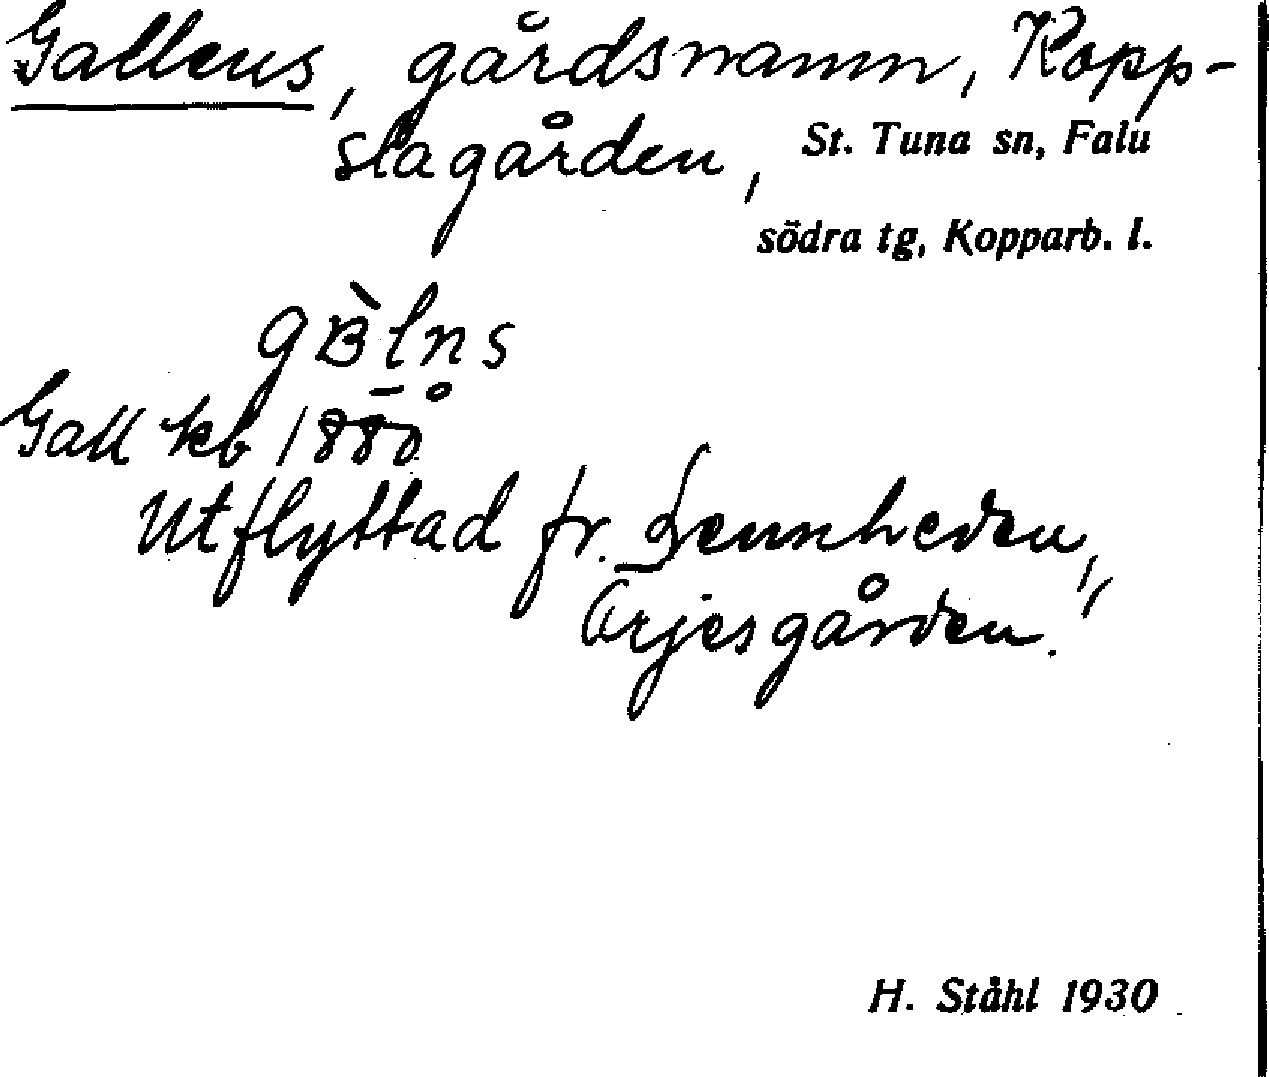 Gallens, gårdsnamn, Kopp-
slagården, St. Tuna sn, Falu
södra tg, Kopparb. l.
gɞ̀l̠n̥s
Gall kb 1880
Utflyttad fr. Lennheden,
Örjesgården.
H. Ståhl 1930